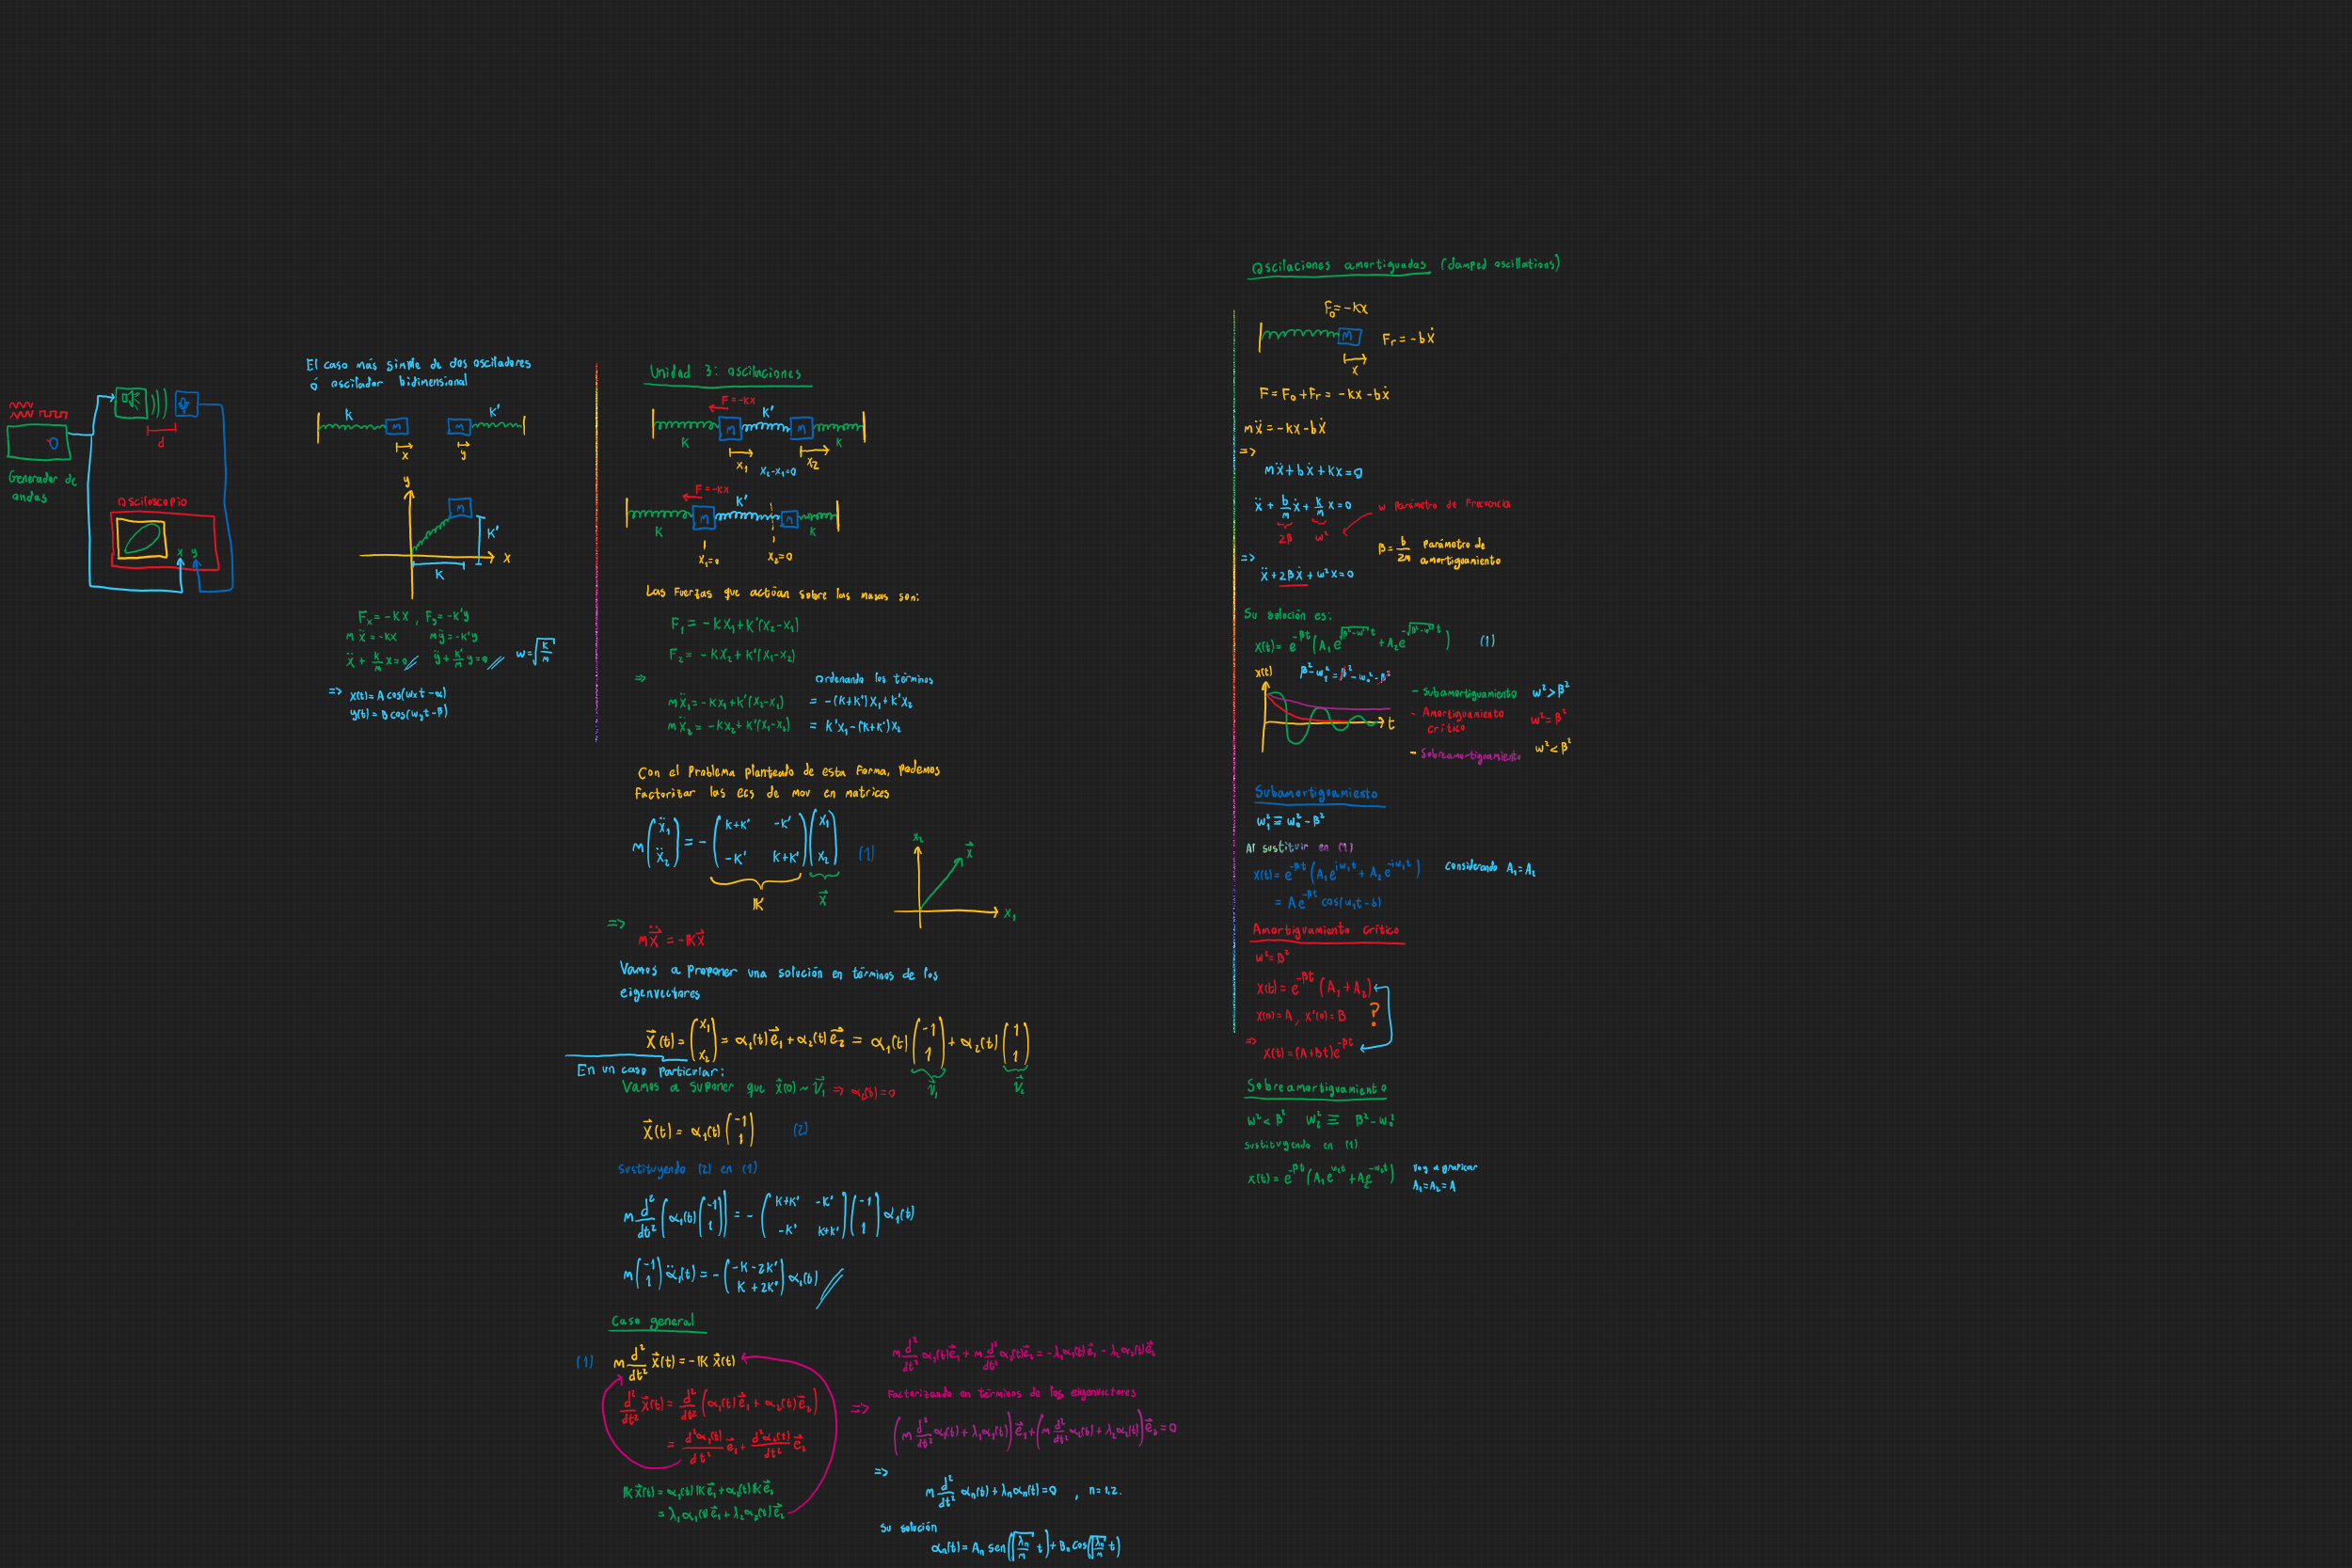 d
Generador de
ondas
Osciloscopio
x y
El caso más simple de dos osciladores
ó oscilador bidimensional
k m m K'
x y
y
m
K'
x
K
Fx = -Kx , Fy = -K'y
mẍ = -kx mÿ = -K'y
ẍ + k/m x = 0 ÿ + K'/m y = 0 w = √(K/m)
=> x(t) = A cos(wx t - α)
y(t) = B cos(wy t - β)
Unidad 3: oscilaciones
F = -kx
K'
m m
K K
x₁ x₂
x₂-x₁=0
F = -kx
K'
m m
K K
x₁=0 x₂=0
Las Fuerzas que actúan sobre las masas son:
F₁ = -Kx₁ + K'(x₂-x₁)
F₂ = -Kx₂ + K'(x₁-x₂)
=>
Ordenando los términos
mẍ₁ = -Kx₁ + K'(x₂-x₁) = -(k+k')x₁ + k'x₂
mẍ₂ = -Kx₂ + K'(x₁-x₂) = k'x₁ - (k+k')x₂
Con el Problema planteado de esta forma, podemos
factorizar las ecs de mov en matrices
m (ẍ₁ ẍ₂) = - (k+k' -k' -k' k+k') (x₁ x₂) (1)
𝕂 x⃗
x₂ x⃗
x₁
=>
mẍ⃗ = -𝕂x⃗
Vamos a Proponer una solución en términos de los
eigenvectores
x⃗(t) = (x₁ x₂) = α₁(t)e⃗₁ + α₂(t)e⃗₂ = α₁(t)(-1 1) + α₂(t)(1 1)
v⃗₁ v⃗₂
En un caso particular:
Vamos a suponer que x⃗(0) ~ v⃗₁ => α₂(t) = 0
x⃗(t) = α₁(t)(-1 1) (2)
Sustituyendo (2) en (1)
m d²/dt² (α₁(t)(-1 1)) = - (k+k' -k' -k' k+k')(-1 1) α₁(t)
m(-1 1) α̈₁(t) = -(-K-2K' K+2K') α₁(t)
Caso general
(1) m d²/dt² x⃗(t) = -𝕂 x⃗(t)
d²/dt² x⃗(t) = d²/dt² (α₁(t)e⃗₁ + α₂(t)e⃗₂)
= d²α₁(t)/dt² e⃗₁ + d²α₂(t)/dt² e⃗₂
𝕂x⃗(t) = α₁(t)𝕂e⃗₁ + α₂(t)𝕂e⃗₂
= λ₁α₁(t)e⃗₁ + λ₂α₂(t)e⃗₂
m d²/dt² α₁(t)e⃗₁ + m d²/dt² α₂(t)e⃗₂ = -λ₁α₁(t)e⃗₁ - λ₂α₂(t)e⃗₂
Factorizando en términos de los eigenvectores
=>
(m d²/dt² α₁(t) + λ₁α₁(t))e⃗₁ + (m d²/dt² α₂(t) + λ₂α₂(t))e⃗₂ = 0
=>
m d²/dt² αn(t) + λnαn(t) = 0 , n=1,2.
Su solución
αn(t) = An sen(√(λn/m) t) + Bn cos(√(λn/m) t)
Oscilaciones amortiguadas (damped oscillations)
F₀ = -kx
m
Fr = -bẋ
x
F = F₀ + Fr = -kx - bẋ
mẍ = -kx - bẋ
=>
mẍ + bẋ + kx = 0
ẍ + b/m ẋ + k/m x = 0 w parámetro de Frecuencia
2β w²
β = b/2m Parámetro de
amortiguamiento
=>
ẍ + 2βẋ + w²x = 0
Su solución es:
x(t) = e^(-βt) (A₁e^(√(β²-w²) t) + A₂e^(-√(β²-w²) t)) (1)
x(t) β²-w₁² = β²-w₀²-β²
t
- Subamortiguamiento w² > β²
- Amortiguamiento
crítico w² = β²
- Sobreamortiguamiento w² < β²
Subamortiguamiento
w₁² ≡ w₀² - β²
Al sustituir en (1)
x(t) = e^(-βt) (A₁e^(iw₁t) + A₂e^(-iw₁t)) considerando A₁=A₂
= Ae^(-βt) cos(w₁t-δ)
Amortiguamiento Crítico
w² = β²
x(t) = e^(-βt) (A₁ + A₂)
x(0) = A , x'(0) = B ?
=>
x(t) = (A+Bt)e^(-βt)
Sobreamortiguamiento
w² < β² w₂² ≡ β² - w₀²
sustituyendo en (1)
x(t) = e^(-βt) (A₁e^(w₂t) + A₂e^(-w₂t)) Voy a graficar
A₁=A₂=A